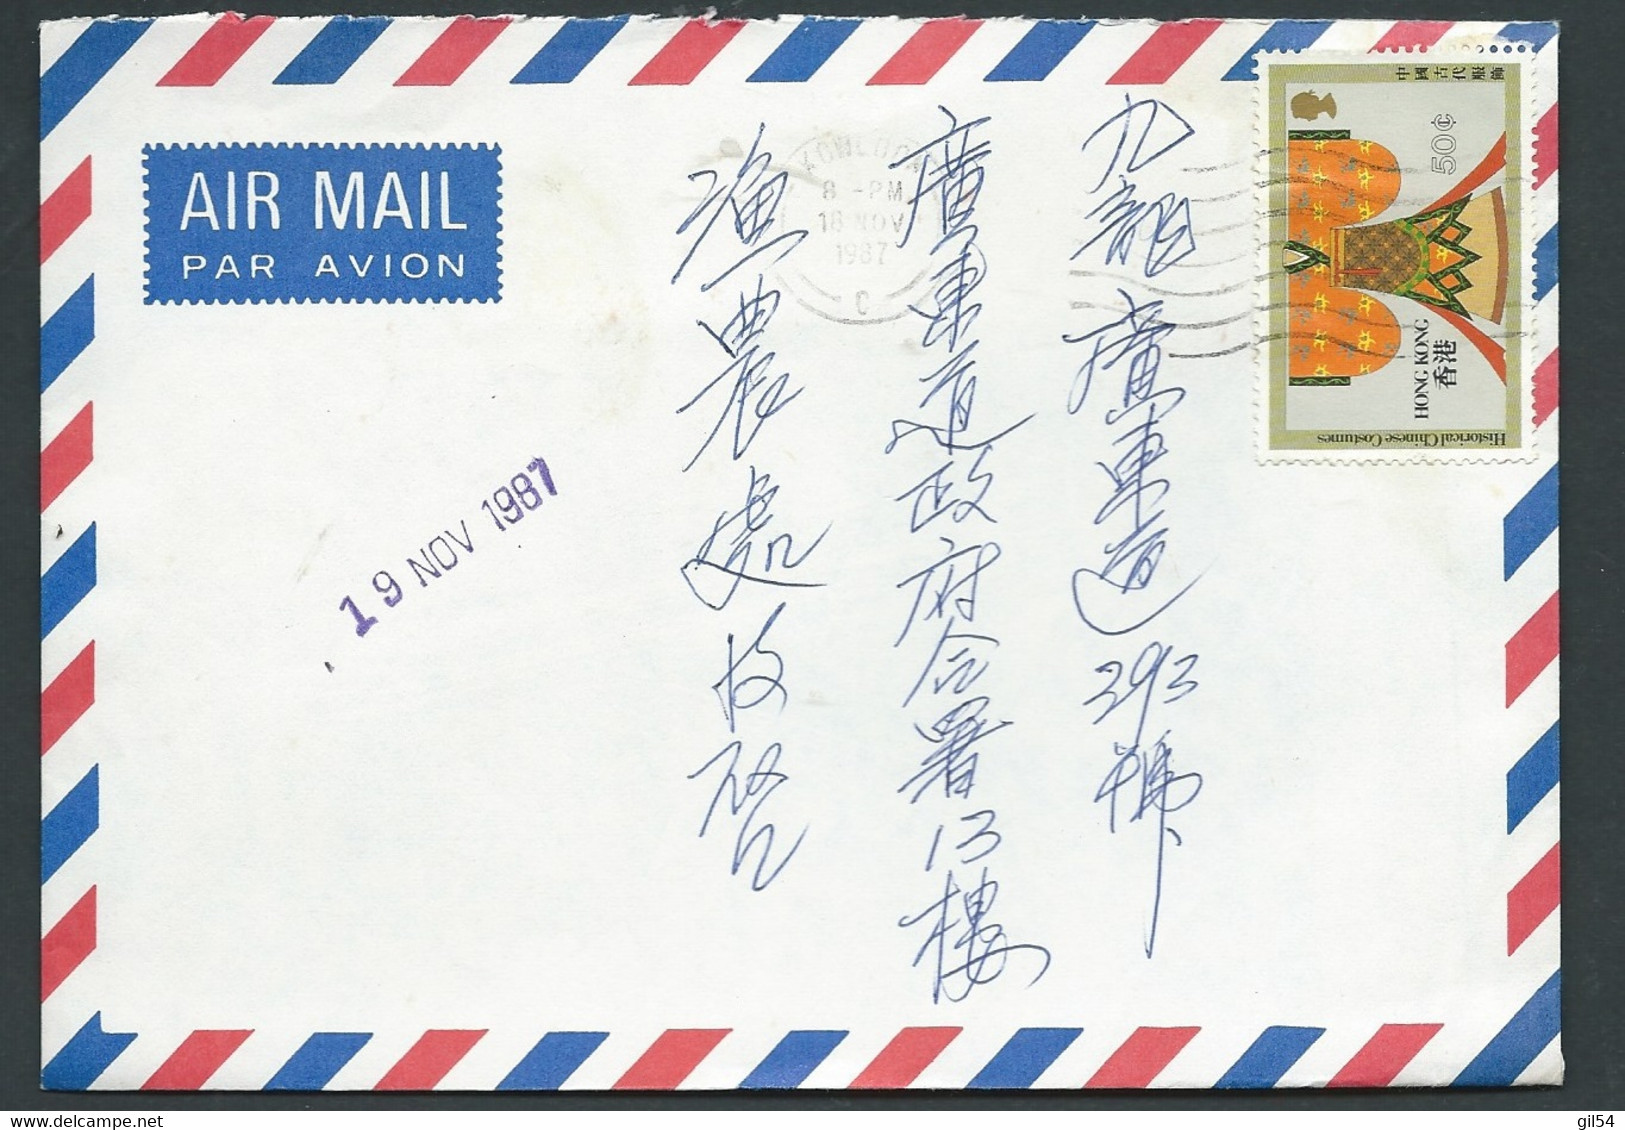 AIR MAIL
PAR AVION
KOWLOON
8 -PM
18 NOV
1987
C
中國古代服飾
50¢
HONG KONG
香港
Historical Chinese Costumes
九龍廣東道393號
廣東道政府合署13樓
漁農處收啓
19 NOV 1987
gil54